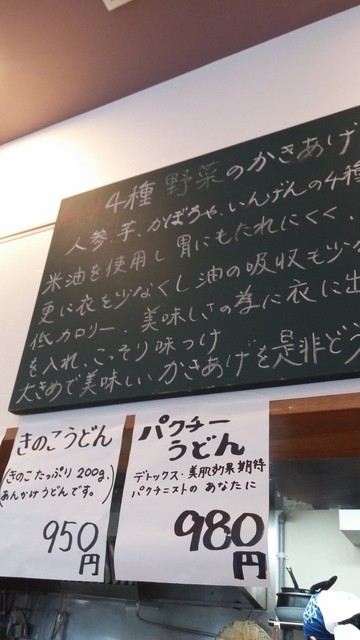 4種 野菜のかきあげ
人参、芋、かぼちゃ、いんげんの4種
米油を使用し 胃にもたれにくく、
更に衣を少なくし油の吸収も少な
低カロリー、美味しさの為に衣に出
を入れ、こっそり味つけ
大きめで美味しい かきあげを是非ど
きのこうどん
(きのこたっぷり 200g、
あんかけうどんです。)
950
円
パクチー
うどん
デトックス・美肌効果期待
パクチニストの あなたに
980
円